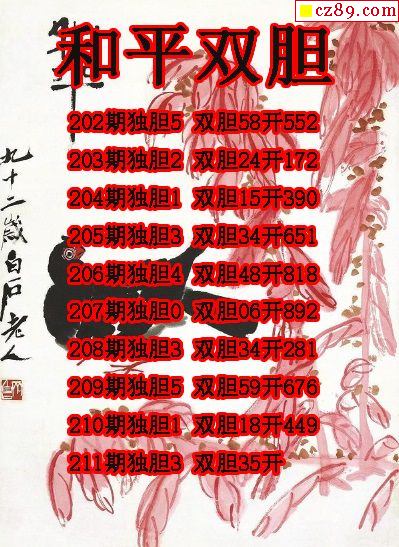 cz89.com
和平双胆
202期独胆5 双胆58开552
203期独胆2 双胆24开172
204期独胆1 双胆15开390
205期独胆3 双胆34开651
206期独胆4 双胆48开818
207期独胆0 双胆06开892
208期独胆3 双胆34开281
209期独胆5 双胆59开676
210期独胆1 双胆18开449
211期独胆3 双胆35开
九十二岁白石老人